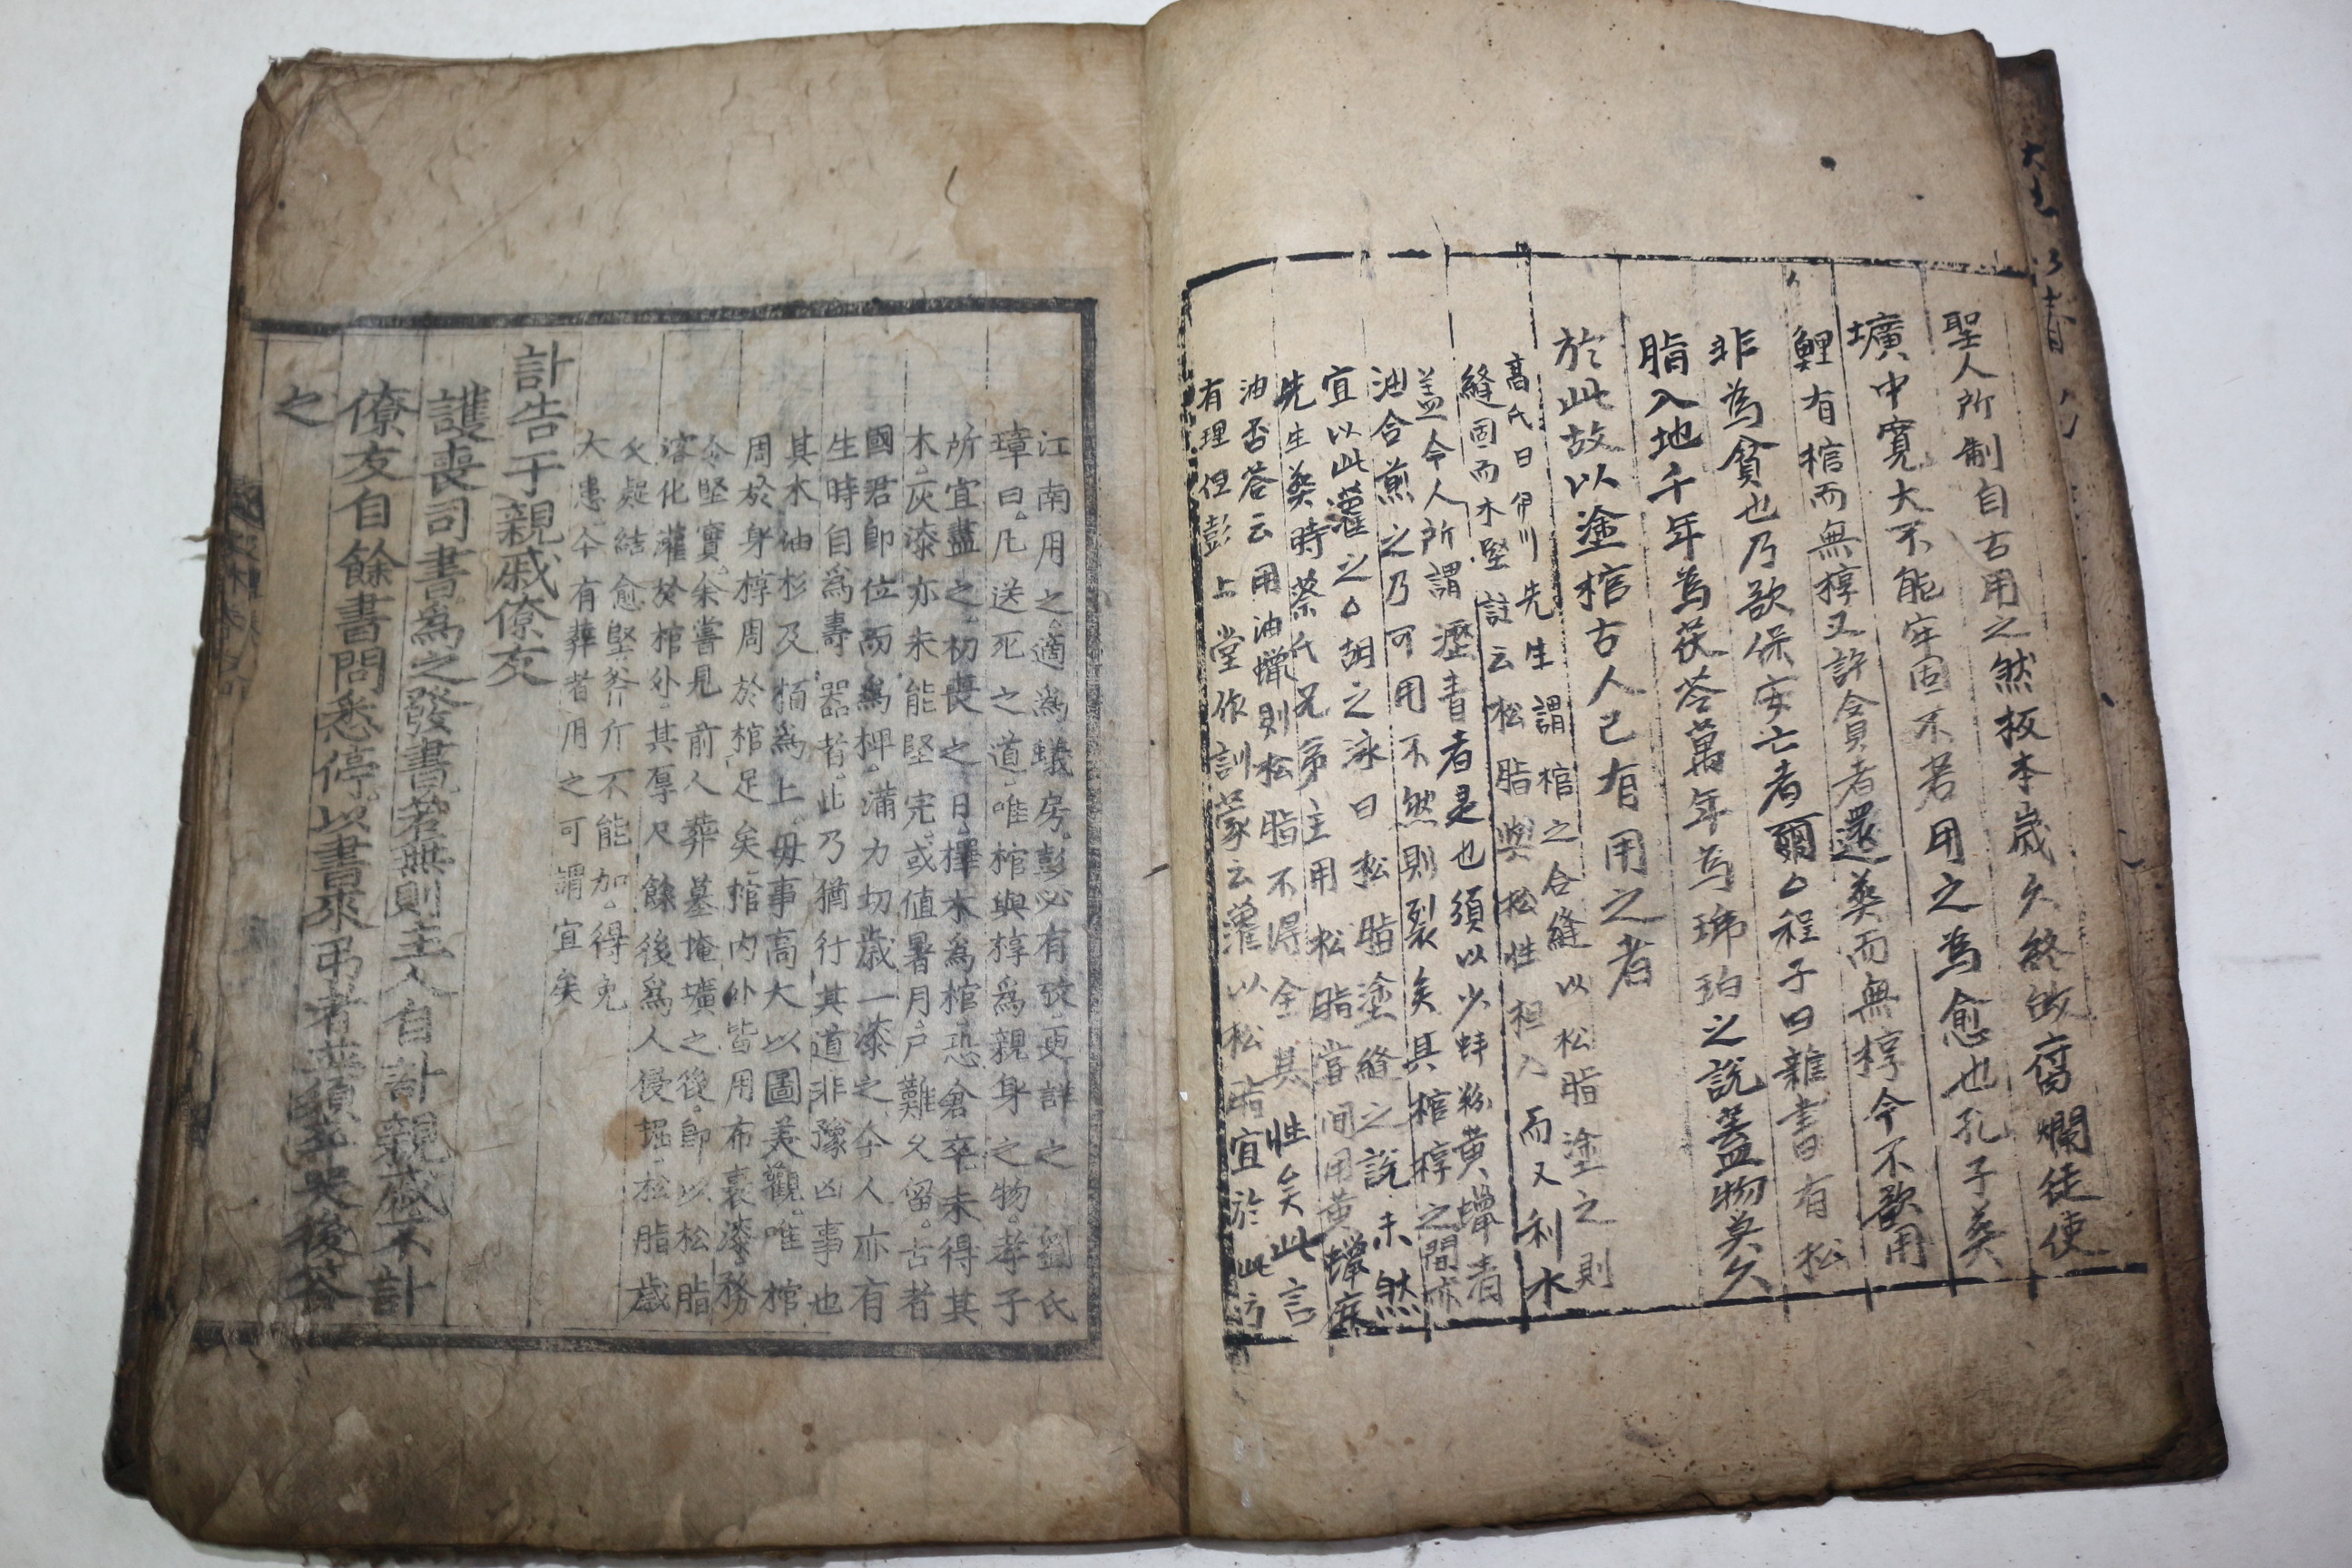 聖人所制自古用之然板本歲久終歸腐爛徒使
壙中寬大不能牢固不若用之為愈也孔子葬
鯉有棺而無椁又許貪者還葬而無椁今不欲用
非為貧也乃欲保安亡者爾○程子曰雜書有松
脂入地千年為茯苓萬年為琥珀之說蓋物莫久
於此故以塗棺古人已有用之者
高氏曰伊川先生謂棺之合縫以松脂塗之則
縫固而木堅註云松脂與松性相入而又利水
盖今人所謂瀝青者是也須以少蚌粉黄蠟清
油合煎之乃可用不然則裂矣其棺椁之間亦
宜以此灌之○胡之泳曰松脂塗縫之說未然
先生葬時蔡氏兄弟主用松脂嘗間用黄蠟麻
油否答云用油蠟則松脂不得全其性矣此言
有理但彭上堂作訓蒙云灌以松脂宜於此方
江南用之適為蟻房彭必有攷更詳之 劉氏
璋曰凡送死之道唯棺與椁為親身之物孝子
所宜盡之初喪之日擇木為棺恐倉卒未得其
木灰漆亦未能堅完或値暑月尸難久留古者
國君卽位而為椑滿力切歲一漆之今人亦有
生時自為壽器者此乃猶行其道非豫凶事也
其木油杉及栢為上毋事高大以圖美觀唯棺
周於身椁周於棺足矣棺內外皆用布裹漆務
令堅實余嘗見前人葬墓掩壙之後卽以松脂
溶化灌於棺外其厚尺餘後為人侵掘松脂歲
久凝結愈堅斧斤不能加得免
大患今有葬者用之可謂宜矣
訃告于親戚僚友
護喪司書為之發書若無則主人自訃親戚不訃
僚友自餘書問悉停以書來弔者並須卒哭後答
之